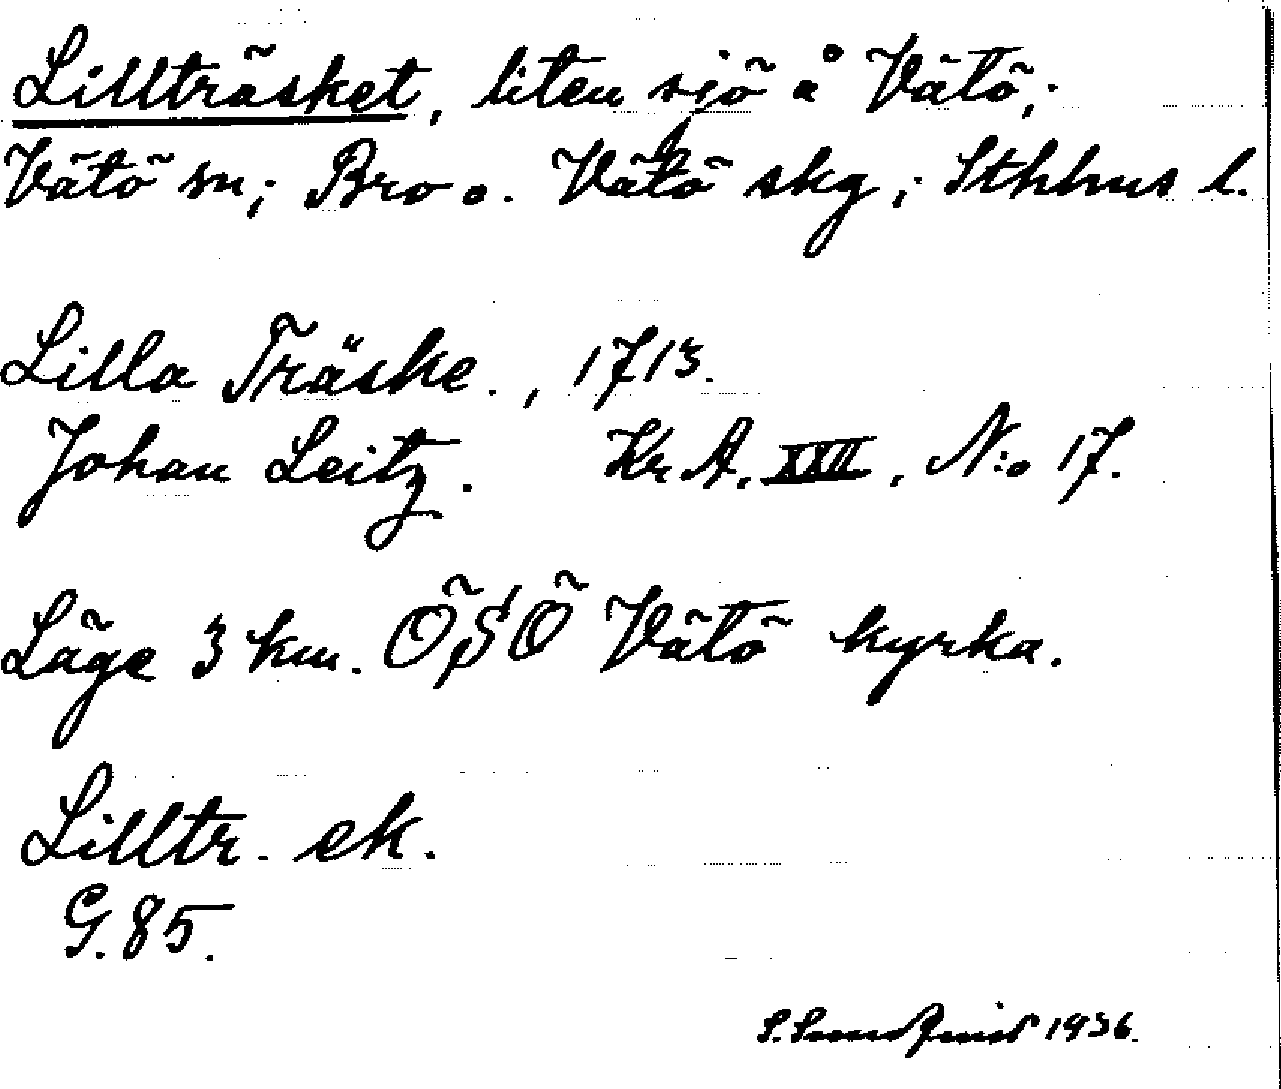 Lillträsket, liten sjö å Vätö;
Vätö sn; Bro o. Vätö skg; Sthhus l.
Lilla Träske., 1713.
Johan Leitz. Kr A. XXII, N:o 17.
Läge 3 km. ÖSÖ Vätö kyrka.
Lilltr. ek.
G. 85.
S. Sundquist 1936.